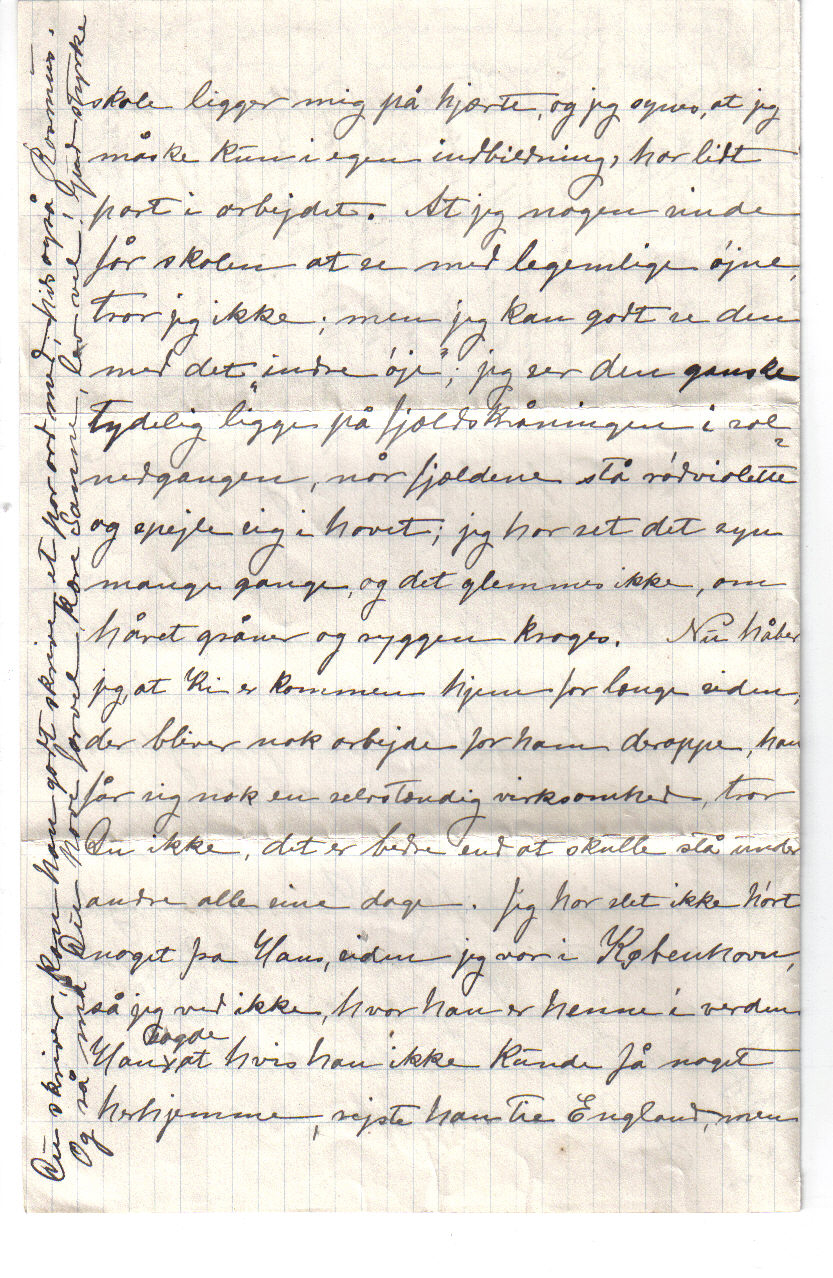 skole ligger mig på hjærte, og jeg synes, at jeg
måske kun i egen indbildning, har lidt
part i arbejdet. At jeg nogen sinde
får skolen at se med legemlige øjne,
tror jeg ikke; men jeg kan godt se den
med det "indre øje"; jeg ser den ganske
tydelig ligge på fjældskråningen i sol-
nedgangen, når fjældene stå rødviolette
og spejle sig i havet; jeg har set det syn
mange gange, og det glemmes ikke, om
håret gråner og ryggen kroges. Nu håber
jeg, at Ki er kommen hjem for længe siden,
der bliver nok arbejde for ham deroppe, han
får sig nok en selvstændig virksomhed, tror
Du ikke, det er bedre end at skulle stå under
andre alle sine dage. Jeg har slet ikke hørt
noget fra Hans, siden jeg var i København,
så jeg ved ikke, hvor han er henne i verden
Han sagde at hvis han ikke kunde få noget
herhjemme, rejste han til England, men
Du skriver, kan han godt skrive et par ord med, hils også Rasmus.
Og så må Du have farvel, kære Sanne, lev vel! Gud styrke